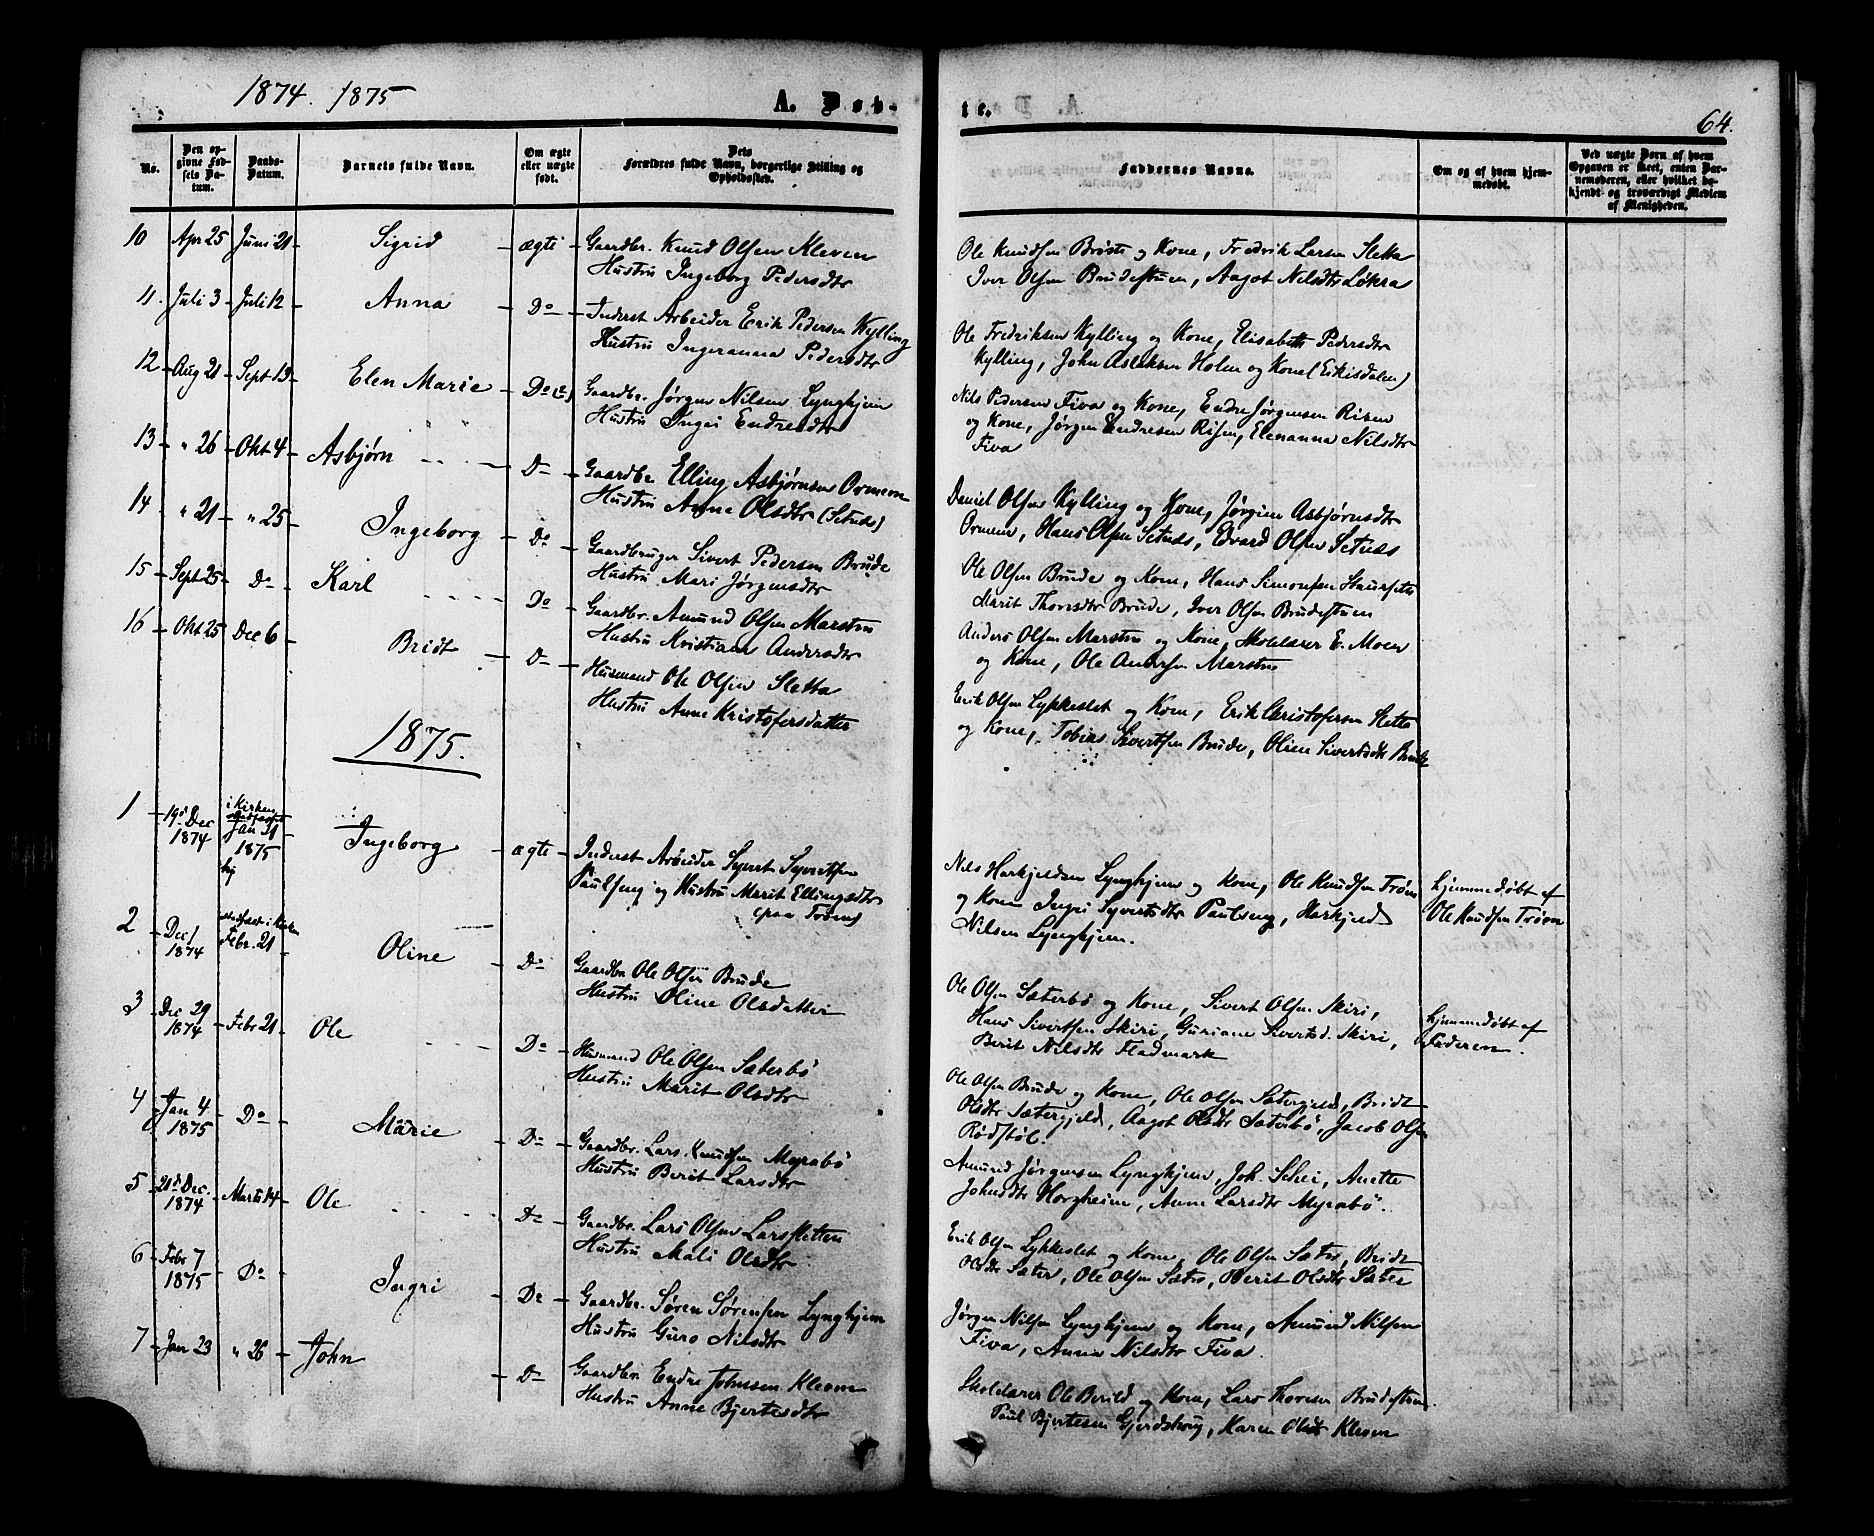 1874. 1875
A. Døb-
te.
64.
No.
Den op-
givne Fød-
sels Da-
tum.
Daabs-
Datum.
Barnets fulde Navn.
Om ægte
eller uægte
født.
Dets
Forældres fulde Navn, borgerlige Stilling og
Opholdssted.
Faddernes Navne.
Om og af hvem hjem-
medøbt.
Ved uægte Børn af hvem
Opgaven er skeet, enten Bar-
nemoderen, eller hvilket be-
kjendt og troværdigt Medlem
af Menigheden.
10 Apr 25 Juni 21 Sigrid ægte Gaardbr. Knud Olsen Kleven
Hustru Ingeborg Pedersdtr
Ole Knudsen Brøste og Kone, Fredrik Larsen Sletta
Iver Olsen Brudestuen, Aagot Nilsdtr Løkra
11. Juli 3 Juli 12 Anna Do Inderst Arbeider Erik Pedersen Kylling
Hustru Ingeranna Pedersdtr
Ole Fredriksen Kylling og Kone, Elisabeth Pedersdtr
Kylling, John Aslaksen Holm og Kone (Eikisdalen)
12 Aug 21 Sept 13 Elen Marie Do Gaardbr. Jørgen Nilsen Lynghjem
Hustru Ingri Endresdtr
Nils Pedersen Fiva og Kone, Endre Jørgensen Risen
og Kone, Jørgen Endresen Risen, Elenanna Nilsdtr
Fiva
13 " 26 Okt 4 Asbjørn Do Gaardbr Elling Asbjørnsen Ormem
Hustru Anna Olsdtr (Setnæs)
Daniel Olsen Kylling og Kone, Jørgine Asbjørnsdtr
Ormem, Hans Olsen Setnæs, Edvard Olsen Setnæs
14 " 21 " 25 Ingeborg Do Gaardbruger Sivert Pedersen Brude
Hustru Mari Jørgensdtr
Ole Olsen Brude og Kone, Hans Simonsen
Marit Thoresdtr Brude, Iver Olsen Brudestuen
15 Sept 25 Do Karl Do Gaardbr. Amund Olsen Marstein
Hustru Kristiane Andersdtr
Anders Olsen Marstein og Kone, Skolelærer E. Moen
og Kone, Ole Andersen Marstein
16 Okt 25 Dec 6 Bridt Do Husmand Ole Olsen Sletta
Hustru Anne Kristofersdatter
Erik Olsen Lykkeslet og Kone, Erik Christofersen Sletta
og Kone, Tobias Sivertsen Brude, Oline Sivertsdtr Brude
1875.
1 19de Dec
1874 i Kirken
Jan 31
1875 Ingeborg ægte Inderst Arbeider Syvert Syvertsen
Paulseng og Hustru Marit Ellingsdtr
(paa Trøen)
Nils Harkjeldsen Lynghjem og Kone, Ole Knudsen Trøen
og Kone Ingri Syvertsdtr Paulseng, Harkjeld
Nilsen Lynghjem.
hjemmedøbt af
Ole Knudsen Trøen
2 Dec 1
1874 stadfæst i Kirken
Febr. 21 Oline Do Gaardbr Ole Olsen Brude
Hustru Oline Olsdatter
Ole Olsen Sæterbø og Kone, Sivert Olsen Skiri,
Hans Sivertsen Skiri, Guriane Sivertsd. Skiri,
Berit Nilsdtr Fladmark
hjemmedøbt af
Faderen.
3 Dec 29
1874 Febr 21 Ole Do Husmand Ole Olsen Sæterbø
Hustru Marit Olsdtr
Ole Olsen Brude og Kone, Ole Olsen Sætergjeld, Bridt
Olsdtr Sætergjeld, Aagot Olsdtr Sæterbø, Jacob Olsen
Rødstøl.
4 Jan 4
1875 Do Marie Do Gaardbr. Lars Knudsen Myrabø
Hustru Berit Larsdtr
Amund Jørgensen Lynghjem, Joh. Schei, Anette
Johnsdtr Horgheim, Anne Larsdtr Myrabø.
5 21de Dec.
1874 Marts 14 Ole Do Gaardbr. Lars Olsen Larssletten
Hustru Mali Olsdtr
Erik Olsen Lykkeslet og Kone, Ole Olsen Sæter, Bridt
Olsdtr Sæter, Ole Olsen Sæter, Berit Olsdtr Sæter
6 Febr 7
1875 Do Ingri Do Gaardbr. Søren Sørensen Lynghjem
Hustru Guro Nilsdtr
Jørgen Nilsen Lynghjem og Kone, Amund Nilsen
Fiva, Anna Nilsdtr Fiva.
7 Jan 23 " 26 John Do Gaardbr. Endre Johnsen Kleven
Hustru Anne Bjertesdtr
Skolelærer Ole Berild og Kone, Lars Thoresen Brudestuen
Paul Bjertesen Gjerdstrøng, Karen Kleven